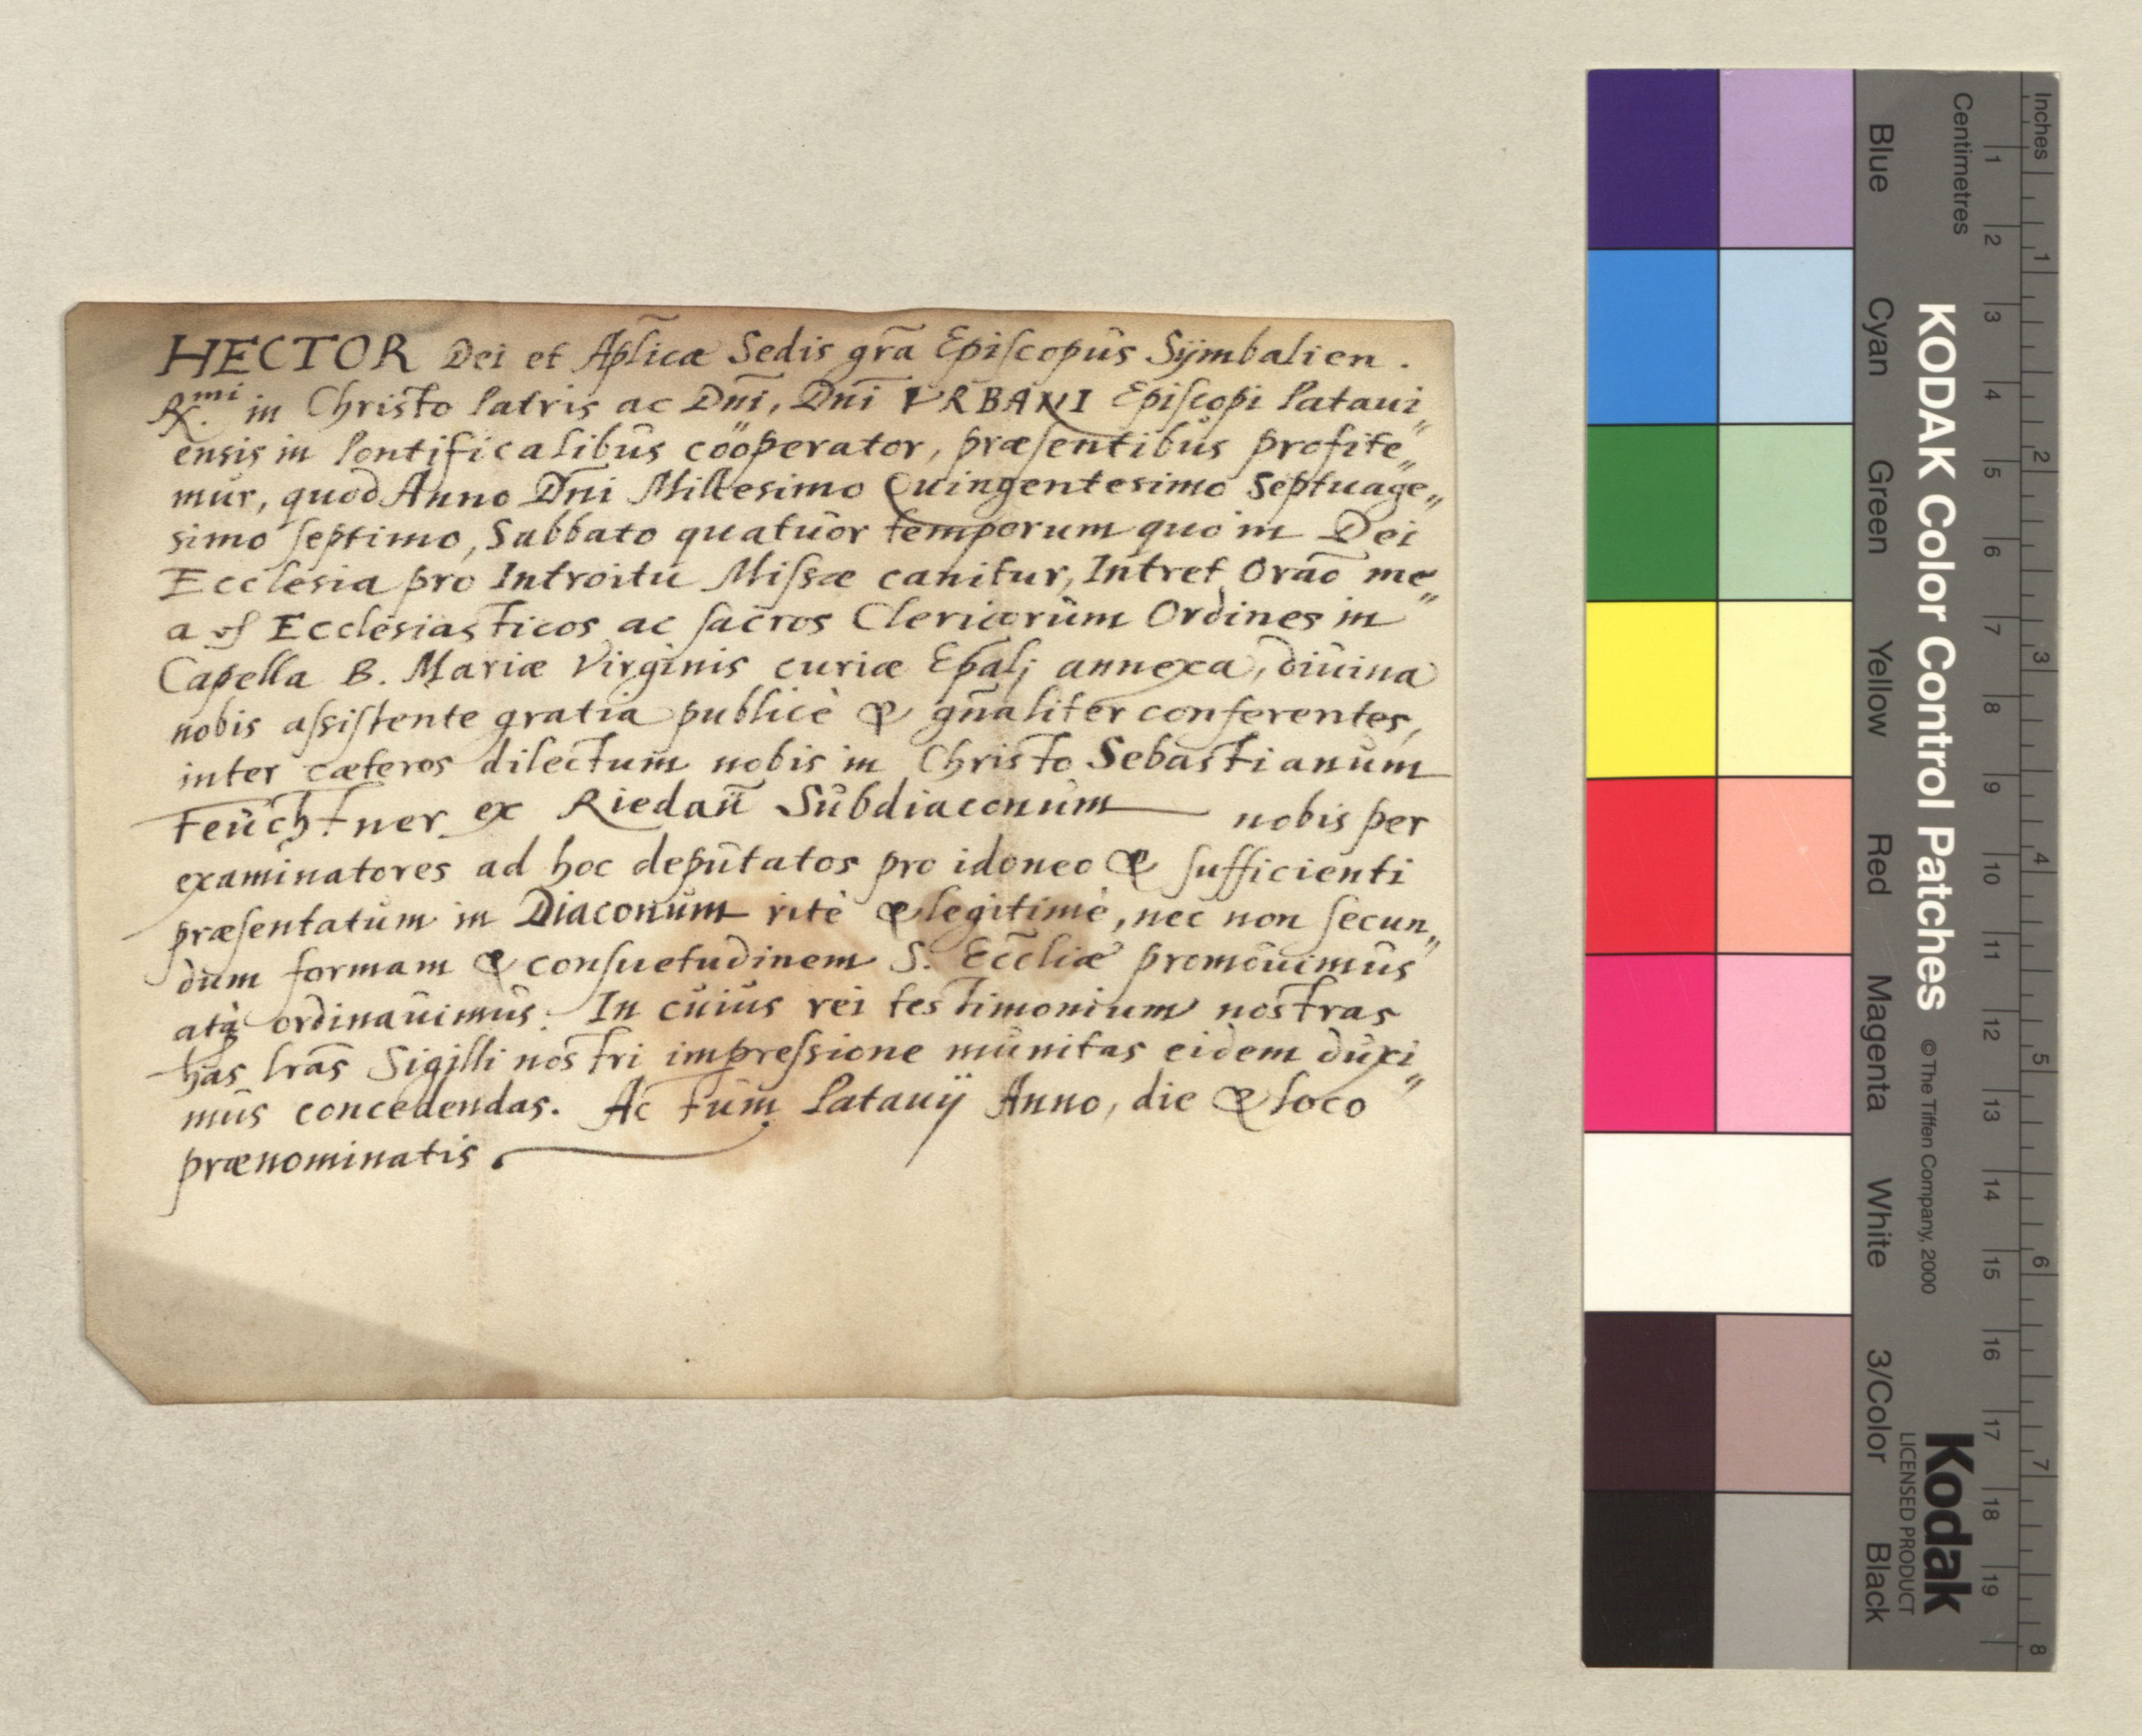 HECTOR Dei et Ap̄licæ Sedis gr̄a Epiſcopus Sÿmbalien.
Rx.mi in Christo Patris ac Dn̄i, Dn̄i VRBANI Epiſcopi Pataui„
ensis in Pontificalibus coöperator, præſentibus profite„
mur, quod Anno Dn̄i Millesimo Quingentesimo Septuage„
simo ſeptimo, Sabbato quatuor temporum quo in Dei
Ecclesia pro Introitu Miſsæ canitur, Intret Orāo me„
a &c Ecclesiasticos ac ſacros Clericorum Ordines in
Capella B. Mariæ Virginis curiæ Ep̄alj annexa, diuina
nobis aſsiſtente gratia publicè & gn̄aliter conferentes,
inter cæteros dilectum nobis in Christo Sebastianum
Feuchtner ex Riedau Subdiaconum nobis per
examinatores ad hoc deputatos pro idoneo & ſufficienti
præſentatum in Diaconum ritè & legitimè, nec non ſecun„
dum formam & conſuetudinem S. Eccl̄iæ promouimus
atq̄ ordinauimus. In cuius rei testimonium nostras
has l̄ras Sigilli nostri impreſsione munitas eidem duxi„
mus concedendas. Actum Patauÿ Anno, die & loco
prænominatis.
Blue
Cyan
Green
Yellow
Red
Magenta
White
3/Color
Black
KODAK Color Control Patches
© The Tiffen Company, 2000
Kodak
LICENSED PRODUCT
Centimetres
1 2 3 4 5 6 7 8 9 10 11 12 13 14 15 16 17 18 19
Inches
1 2 3 4 5 6 7 8